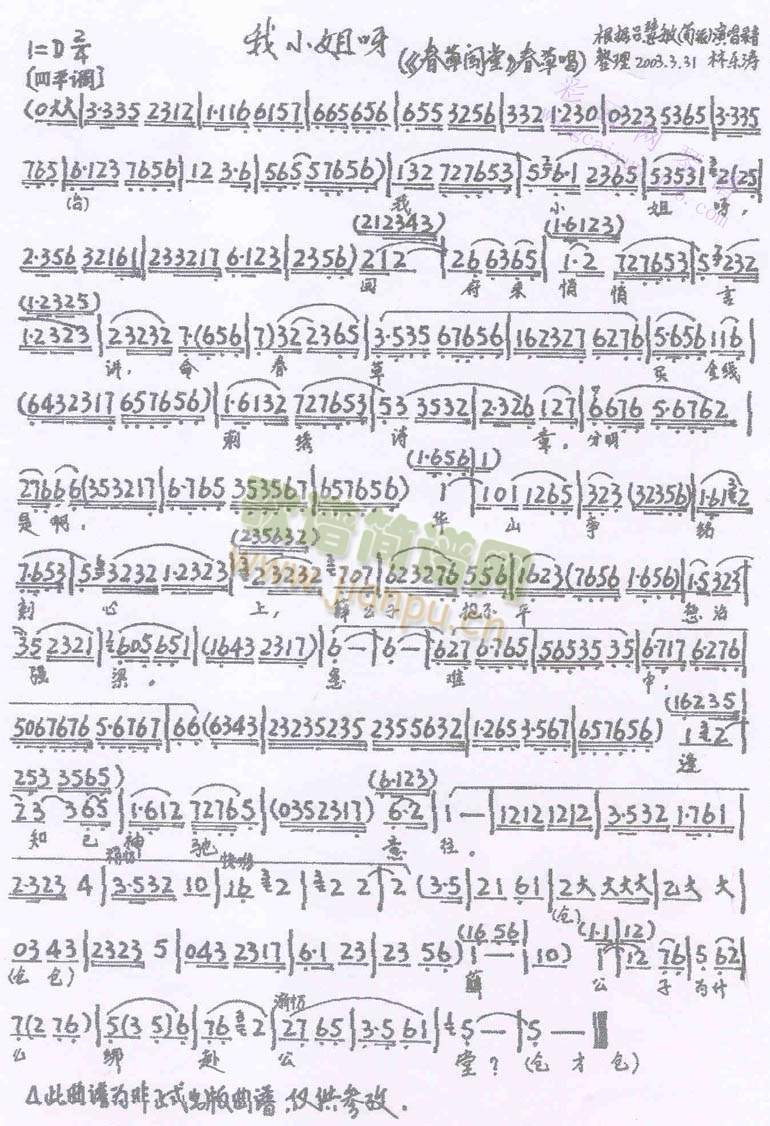 我小姐呀
1=D 2/4
(《春草闯堂》春草唱)
根据吕慧敏(荀派)演唱录音
[四平调]
整理 2003.3.31 林东涛
(0大大|3·335 2312|1·116 6157|665656|655 3256|332 1·230|0323 5365|3·335
765|6·123 7656|12 3·6|565 57656)|132 727653|5 6·1 2365|53531 2(25|
(台) 我 小 姐 呀,
(212343) (1·6123)
2·356 32161|233217 6·123|2356)212|26 6365|1·2 727653|5 3232
回 府 来 悄 悄 言
(1·2325)
1·2323|23232 7·(656|7)32 2365|3·535 67656|162327 6276|5·656 116|
讲, 命 春 草 买 金线
(6432317 657656)|1·6132 727653|53 3532|2·326 127|6676 5·6762|
刺 绣 诗 章。 分明
(1·656|1)
27666(353217|6·765 353567|657656) 1|101 1265|323 (32356)|1·61 2
是啊, 华 山 争 给
(235632)
7·653|5 3232 1·2323|23232 707|623276 556|1623(7656 1·656)|1·5323|
射 心 上, 薛公子 抱不平 惩治
35 2321|605651|(1643 2317)|6—|6—|627 6·765|56535 35|6·717 6·276|
强 梁。 急 难 中,
(16235|
5067676 5·6767|66(6343|23235235 2355632|1·265 3·567|657656) 1 2|
遂
253 3565) (6·123)
23 365|1·612 72765|(0352317) 6·2|1—|1212 1212|3·532 1·761|
知 已 神 驰 意 往。
稍慢 快些
2·323 4|3·532 10|16 2|2 2|2 (3·5|21 61|2大 大大大|乙大 大
(仓)
(16 56| (1·1|12)
03 43|2323 5|043 2317|6·1 23|23 56) 1—|10) 1|12 76|5 62|
(仓 仓) 薛 公 子 为什
渐慢
7(2 76)|5(3 5)6|76 2|27 65|3·5 61|5—|5—‖
么 绑 赴 公 堂? (仓 才 仓)
△此曲谱为非正式出版曲谱,仅供参考.
歌谱简谱网
www.jianpu.cn